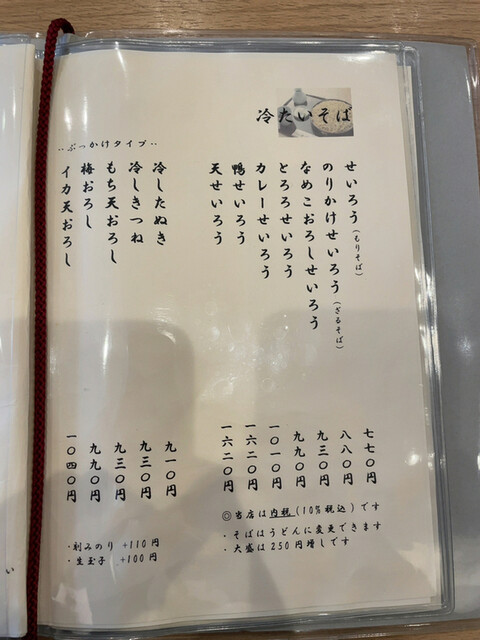 冷たいそば
せいろう(もりそば) 七七〇円
のりかけせいろう(ざるそば) 八八〇円
なめこおろしせいろう 九三〇円
とろろせいろう 九九〇円
カレーせいろう 一〇一〇円
鴨せいろう 一六二〇円
天せいろう 一六二〇円
◎当店は内税(10%税込)です
・そばはうどんに変更できます
・大盛は250円増しです
‥ぶっかけタイプ‥
冷したぬき 九一〇円
冷しきつね 九三〇円
もち天おろし 九三〇円
梅おろし 九九〇円
イカ天おろし 一〇四〇円
・刻みのり +110円
・生玉子 +100円
い